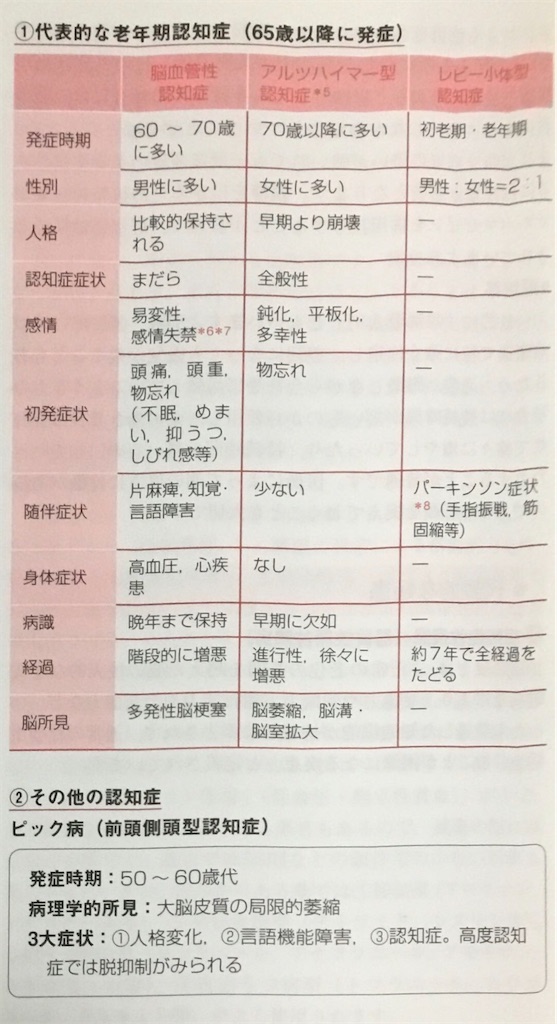 ①代表的な老年期認知症（65歳以降に発症）
脳血管性
認知症
アルツハイマー型
認知症*5
レビー小体型
認知症
発症時期
60 ～ 70歳
に多い
70歳以降に多い
初老期・老年期
性別
男性に多い
女性に多い
男性：女性=2：1
人格
比較的保持さ
れる
早期より崩壊
―
認知症症状
まだら
全般性
―
感情
易変性,
感情失禁*6*7
鈍化，平板化,
多幸性
―
初発症状
頭痛，頭重,
物忘れ
（不眠，めま
い，抑うつ,
しびれ感等）
物忘れ
―
随伴症状
片麻痺，知覚・
言語障害
少ない
パーキンソン症状
*8（手指振戦，筋
固縮等）
身体症状
高血圧，心疾
患
なし
―
病識
晩年まで保持
早期に欠如
―
経過
階段的に増悪
進行性，徐々に
増悪
約7年で全経過を
たどる
脳所見
多発性脳梗塞
脳萎縮，脳溝・
脳室拡大
②その他の認知症
ピック病（前頭側頭型認知症）
発症時期：50 ～ 60歳代
病理学的所見：大脳皮質の局限的萎縮
3大症状：①人格変化，②言語機能障害，③認知症。高度認知
症では脱抑制がみられる